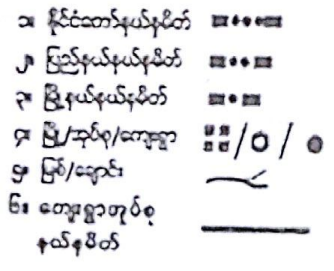 ၁။ နိုင်ငံတော်နယ်နမိတ်
၂။ ပြည်နယ်နယ်နမိတ်
၃။ မြို့နယ်နယ်နမိတ်
၄။ မြို့/အုပ်စု/ကျေးရွာ
၅။ မြစ်/ချောင်း
၆။ ကျေးရွာအုပ်စု
နယ်နမိတ်